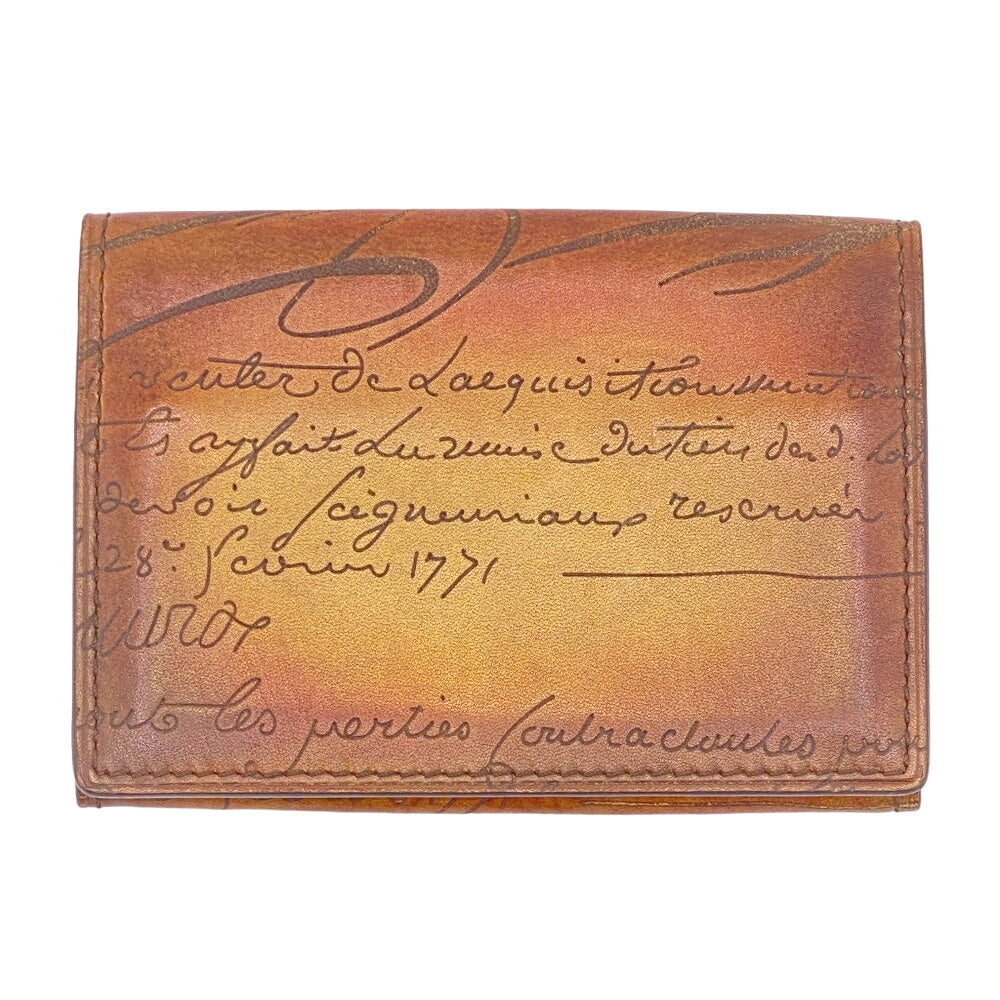 venter de Lacquisition
Es ayfait Lu remise du tiers de d.
devoir Seigneuriaux reservér
28e. fevrier 1771
out les parties Contractantes pour